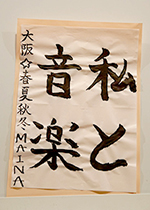 私と
音楽
大阪☆春夏秋冬MAINA